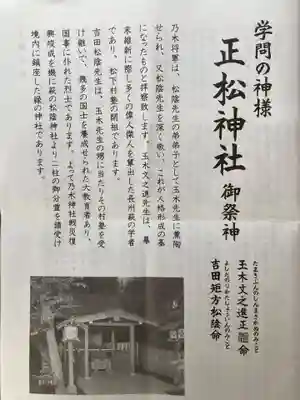 学問の神様
正松神社 御祭神
たまきぶんのしんまさかぬのみこと
玉木文之進正 命
よしだのりかたしょういんのみこと
吉田矩方松陰命
乃木将軍は、松陰先生の弟弟子として玉木先生に薫陶
せられ、又松陰先生を深く敬い、これが人格形成の基
になったものと拝察致します。玉木文之進先生は、幕
末維新に際し多くの偉人傑人を輩出した長州萩の学者
であり、松下村塾の開祖であります。
吉田松陰先生は、玉木先生の甥に当たりその村塾を受
け継いで、幾多の国士を養成せられた大教育者であり、
国事に仆れた烈士であります。よって乃木神社戦災復
興竣成を機に萩の松陰神社より二柱の御分霊を請受け
境内に鎮座した縁の神社であります。